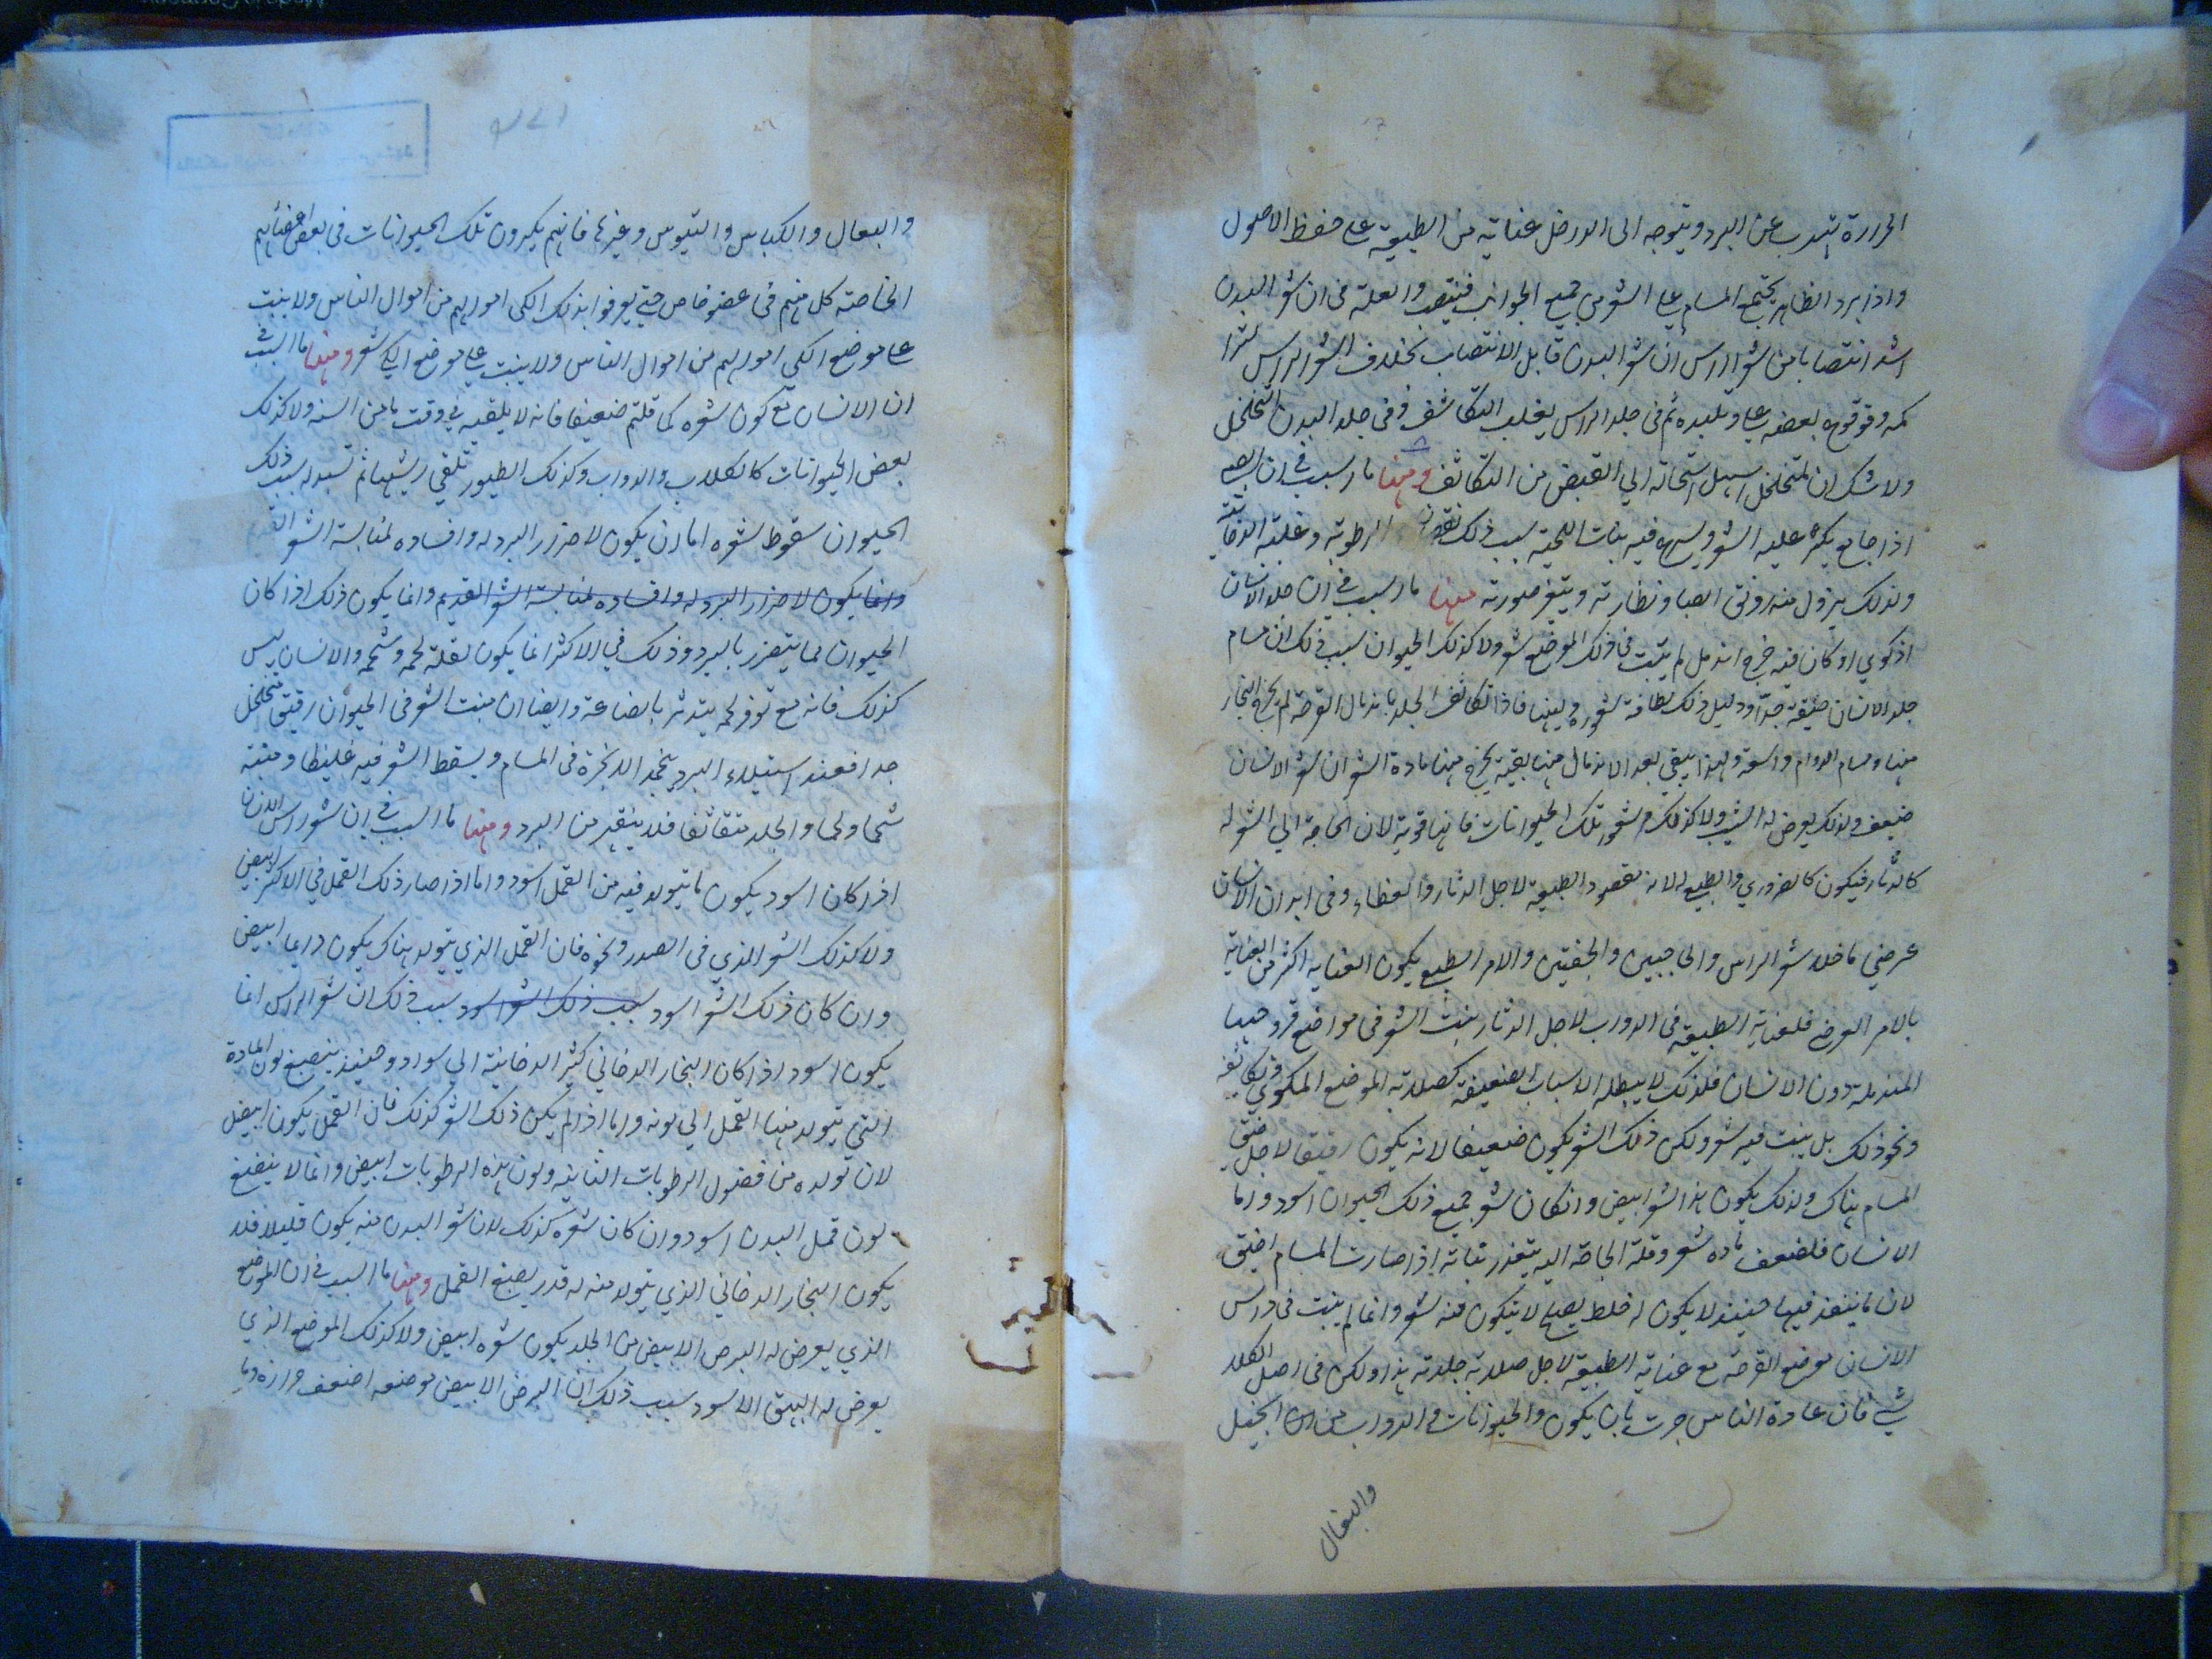 الحرارة تهرب عن البرد ويتوجه الى الداخل عناية من الطبيعة على حفظ الاصول
واذا برد الظاهر يجتمع المسام على الشعر من جميع الجوانب فينتصب والعلة في ان شعر البدن
اشد انتصابا من شعر الراس ان شعر البدن قابل الانتصاب بخلاف الشعر الراس
وقوعه بعضه على وتلبده ثم في جلد الراس يغلب التكاثف وفي جلد البدن التخلخل
ولا شك ان المتخلخل اسهل استحالة الى القبض من التكاثف ومنها ما السبب في ان الصبي
اذا جامع يكثر عليه الشعر ويسرع فيه نبات اللحية سبب ذلك نقصان الرطوبة وغلبة الدخانية
ولذلك يزول منه رونق الصبا ونظارته ويتغير صورته منها ما السبب في ان جلد الانسان
اذا كوي او كان فيه قرح اندمل لم ينبت في ذلك الموضع شعر ولا كذلك الحيوان سبب ذلك ان مسام
جلد الانسان ضيقة جدا ودليل ذلك لطافة شعوره ولينها فاذا تكاثف الجلد باندمال القرحة لم يخرج البخار
منها ومسام الدواب واسعة ولهذا يبقى بعد الاندمال منها بقية يخرج منها مادة الشعر ان شعر الانسان
ضعيف ولذلك يعرض له الشيب ولا كذلك شعور تلك الحيوانات فانها قوية لان الحاجة الى الشعر له
كالدثار فيكون كالضروري والطبيعي له لانه مقصود الطبيعة لاجل الدثار والغطاء وفي ابدان الانسان
عرضي ما خلا شعر الراس والحاجبين والجفنين والامر الطبيعي يكون العناية اكثر من العناية
بالامر العرضي فلعناية الطبيعة في الدواب لاجل الدثار ينبت الشعر في مواضع قروحها
المندملة دون الانسان فلذلك لا يبطله الاسباب الضعيفة كصلابة الموضع المكوي وتكاثفه
ونحو ذلك بل ينبت فيه شعر ولكن ذلك الشعر يكون ضعيفا لانه يكون رقيقا لاجل ضيق
المسام هناك ولذلك يكون هذا الشعر ابيض وانكان شعر جميع ذلك الحيوان اسود واما
الانسان فلضعف مادة شعره وقلة الحاجة اليه يتعذر نباته اذا صارت المسام اضيق
لان ما ينفذ فيها حينئذ لا يكون له خلط يصلح لا يتكون منه شعر وانما لم ينبت في راس
الانسان موضع القرحة مع عناية الطبيعة لاجل صلابة جلدته هذا ولكن في اصل الكلام
شيء فان عادة الناس جرت بان يكون والحيوانات والدواب من الخيل
والبغال
والبغال والكباس والتيوس وغيرها فانهم يكوون تلك الحيوانات في بعض اعضائهم
الخاصة كل منهم في عضو خاص حتى يعرفوا بذلك الكي اموالهم من اموال الناس ولا ينبت
على موضع الكي اموالهم من اموال الناس ولا ينبت على موضع الكي شعر ومنها ما السبب في
ان الانسان مع كون شعره كما قلتم ضعيفا فانه لا يلقيه في وقت ما من السنة ولا كذلك
بعض الحيوانات كالكلاب والدواب وكذلك الطيور تلقي ريشها ثم تبدله سبب ذلك
الحيوان سقوط شعره اما ان يكون لاضرار البرد له وافساده لمنابت الشعر
وانما يكون لاضرار البرد له وافساده لمنابت الشعر القديم وانما يكون ذلك اذا كان
الحيوان مما يتضرر بالبرد وذلك في الاكثر انما يكون لقلة لحمه وشحمه والانسان ليس
كذلك فانه مع توفر لحمه يتدثر بالصناعة وايضا ان منبت الشعر في الحيوان رقيق متخلخل
جدا فعند استيلاء البرد ينجمد الابخرة في المسام ويسقط الشعر فيه غليظا ومنبته
شحما ولحما والجلد متكاثفا فلا يتغير من البرد ومنها ما السبب في ان شعر راس الانسان
اذا كان اسود يكون ما يتولد فيه من القمل اسود واما اذا صار ذلك القمل في الاكثر ابيض
ولا كذلك الشعر الذي في الصدر ونحوه فان القمل الذي يتولد هناك يكون دائما ابيض
وان كان ذلك الشعر اسود سبب ذلك الشعر اسود سبب ذلك ان شعر الراس انما
يكون اسود اذا كان البخار الدخاني كثير الدخانية الى سواد وحينئذ ينصبغ لون المادة
التي يتولد منها القمل الى لونه واما اذا لم يكن ذلك الشعر كذلك فان القمل يكون ابيض
لان تولده من فضول الرطوبات الثانية ولون هذه الرطوبات ابيض وانما لا ينصبغ
لون قمل البدن اسود وان كان شعره كذلك لان شعر البدن منه يكون قليلا فلا
يكون البخار الدخاني الذي يتولد منه له قدر يصبغ القمل ومنها ما السبب في ان الموضع
الذي يعرض له البرص الابيض من الجلد يكون شعره ابيض ولا كذلك الموضع الذي
يعرض له البهق الاسود سبب ذلك ان البرص الابيض موضعه اضعف حرارة